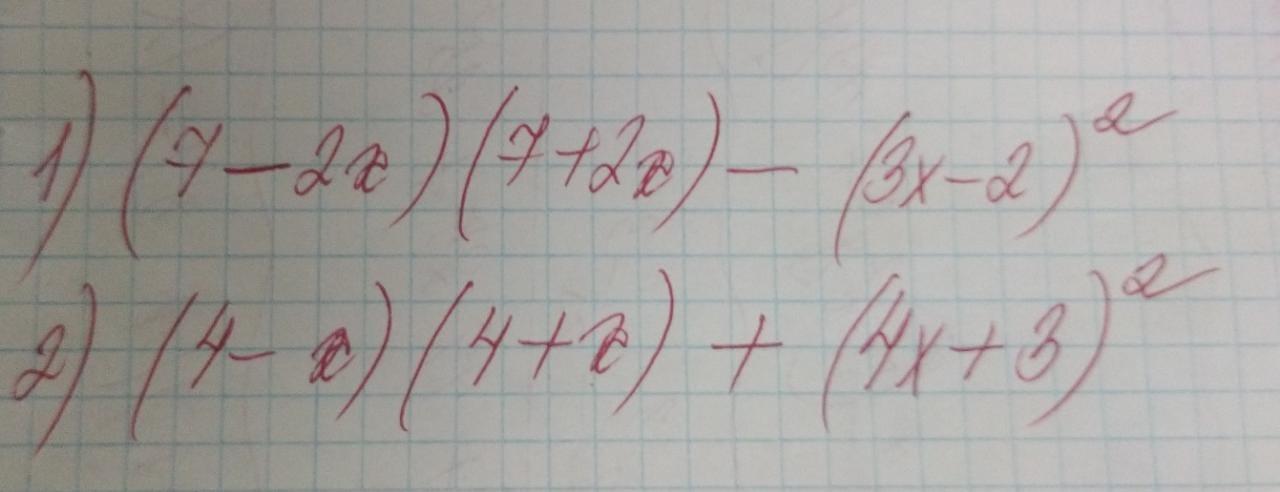 1) (7-2x)(7+2x) - (3x-2)²
2) (4-x)(4+x) + (4x+3)²